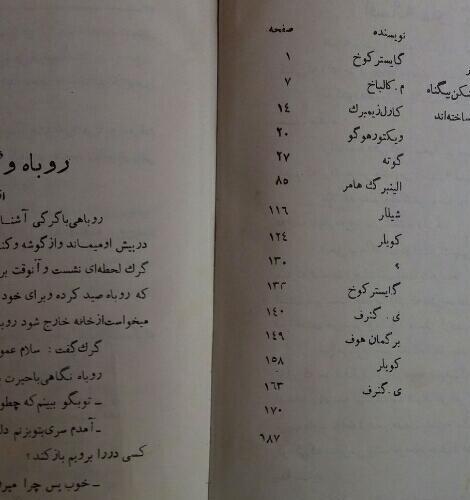 نویسنده صفحه
گایستر کوخ ۱
م. کالباخ ۷
شکن بیگناه
کارل زیمبرك ۱۴
ساخته‌اند
ویکتور هوگو ۲۰
گوته ۲۷
الینبرگ هامر ۸۵
شیللر ۱۱۶
کوبلر ۱۲۴
؟ ۱۳۰
گایستر کوخ
ی. گنرف ۱۴۰
برگمان هوف ۱۴۹
کوبلر ۱۵۸
ی. گنرف ۱۶۳
۱۷۰
۱۸۷
روباه و
روباهی با گرگی آشنا
در بیش او میماند و از گوشه و کنا
گرك لحظه‌ای نشست و آنوقت بر
که روباه صید کرده و برای خود
میخواست از خانه خارج شود روبا
گرك گفت : سلام عمو
روباه نگاهی با حیرت
ـ تو بگو ببینم که چطو
ـ آمدم سری بتو بزنم دل
کسی در را برویم باز کند؟
ـ خوب پس چرا میر